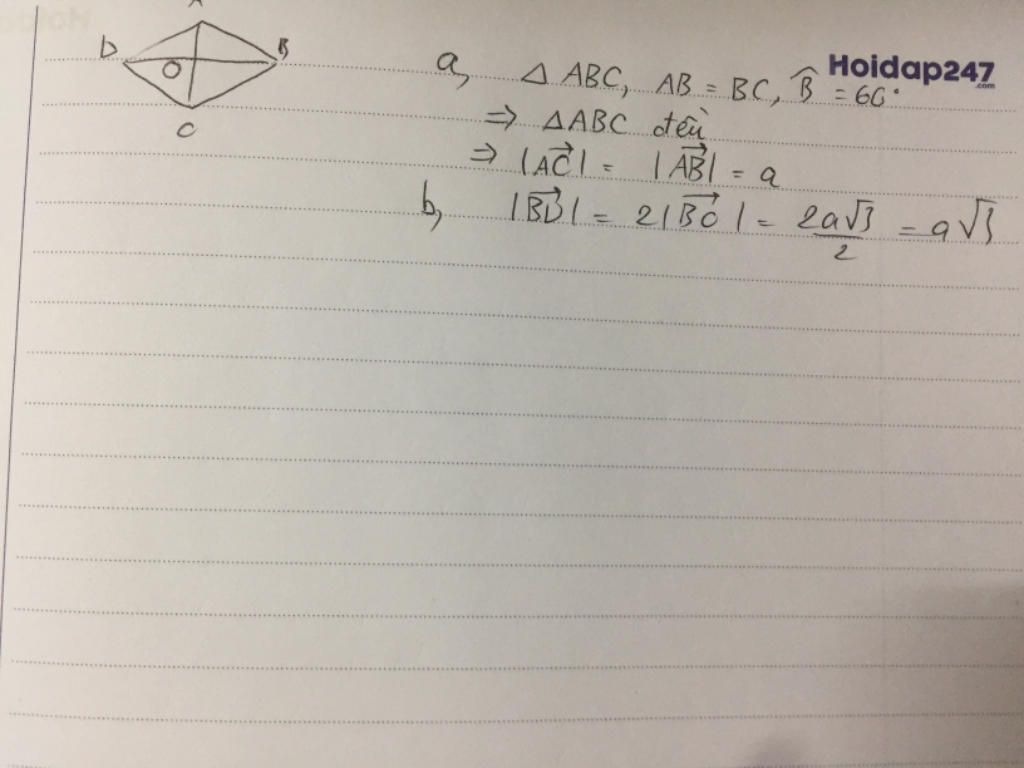 A
D
B
O
C
Hoidap247
.com
a, △ ABC, AB = BC, B̂ = 60°
⇒ △ABC đều
⇒ |AC⃗| = |AB⃗| = a
b, |BD⃗| = 2|BO⃗| = 2a√3/2 = a√3